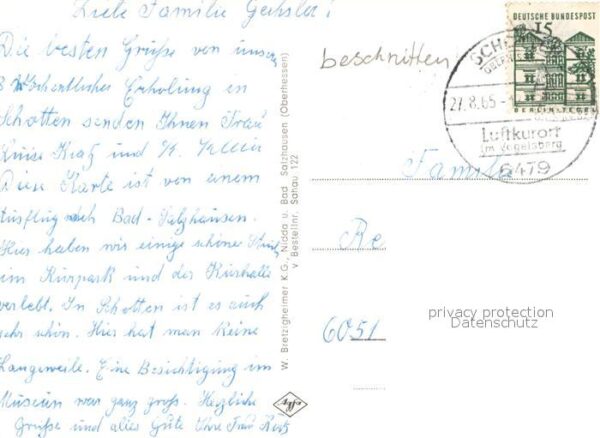 Liebe Familie Geißler!
Die besten Grüße von unserer
3 Wöchentlichen Erholung in
Schotten senden Ihnen Frau
Luise und K.
Diese Karte ist von einem
Ausflug nach Bad-Salzhausen.
Hier haben wir einige schöne Stund.
im Kurpark und der Kurhalle
verlebt. In Schotten ist es auch
sehr schön. Hier hat man keine
Langeweile. Eine Besichtigung im
Museum war ganz groß. Herzliche
Grüße und alles Gute Ihre Frau
W. Bretzigheimer K.G., Nidda u. Bad Salzhausen (Oberhessen)
v Bestellnr. Sahau 122
effka
beschnitten
DEUTSCHE BUNDESPOST
15
BERLIN-TEGEL
SCH
27.8.65
Luftkurort
im Vogelsberg
6479
Familie
Re
6051
privacy protection
Datenschutz